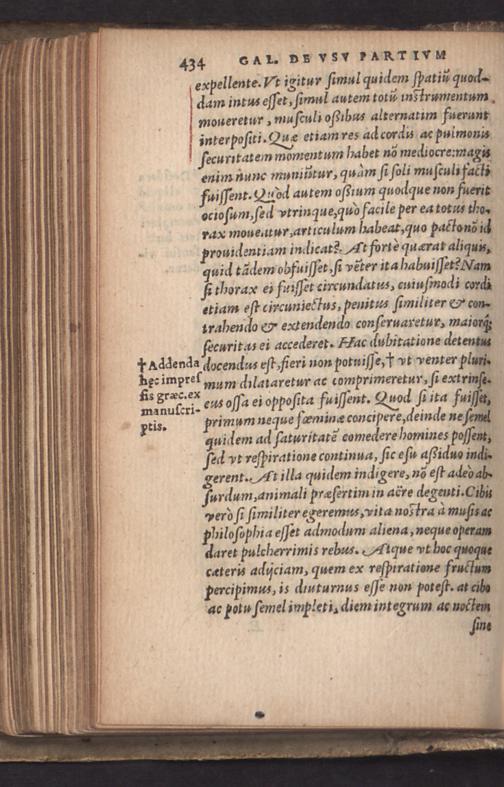 434 GAL. DE VSV PARTIVM
expellente. Vt igitur simul quidem spatiũ quod-
dam intus esset, simul autem totũ instrumentum
moueretur, musculi oßibus alternatim fuerunt
interpositi. Quæ etiam res ad cordis ac pulmonis
securitatem momentum habet nõ mediocre: magis
enim nunc muniũtur, quàm si soli musculi facti
fuissent. Quòd autem oßium quodque non fuerit
ociosum, sed vtrinque, quò facile per ea totus tho-
rax moueatur, articulum habeat, quo pacto nõ id
prouidentiam indicat? At fortè quærat aliquis,
quid tãdem obfuisset, si vẽter ita habuisset? Nam
si thorax ei fuisset circundatus, cuiusmodi cordi
etiam est circuniectus, penitus similiter & con-
trahendo & extendendo conseruaretur, maiorq́;
securitas ei accederet. Hac dubitatione detentus
docendus est, fieri non potuisse, † vt venter pluri-
mum dilataretur ac comprimeretur, si extrinse-
eus ossa ei opposita fuissent. Quod si ita fuisset,
primum neque fœminæ concipere, deinde ne semel
quidem ad saturitatẽ comedere homines possent,
sed vt respiratione continua, sic esu aßiduo indi-
gerent. At illa quidem indigere, nõ est adeò ab-
surdum, animali præsertim in aëre degenti. Cibis
verò si similiter egeremus, vita nostra à musis ac
philosophia esset admodum aliena, neque operam
daret pulcherrimis rebus. Atque vt hoc quoque
cæteris adijciam, quem ex respiratione fructum
percipimus, is diuturnus esse non potest. at cibo
ac potu semel impleti, diem integrum ac noctem
sine
† Addenda
hęc impres
sis græc. ex
manuscri-
ptis.